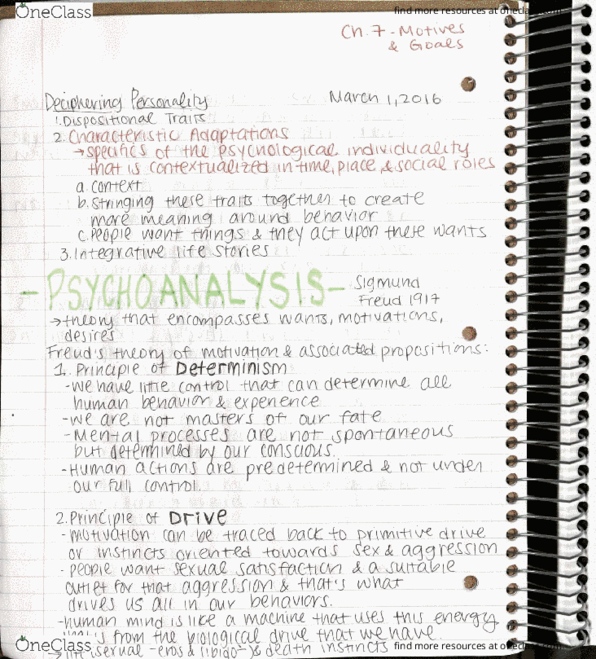 OneClass
find more resources at oneclass.com
Ch. 7 - Motives
& Goals
Deciphering Personality March 1, 2016
1. Dispositional Traits
2. Characteristic Adaptations
→ specifics of the psychological individuality
that is contextualized in time, place, & social roles
a. context
b. Stringing these traits together to create
more meaning around behavior
c. People want things & they act upon these wants
3. Integrative life stories
- PSYCHOANALYSIS - Sigmund
Freud 1917
→ theory that encompasses wants, motivations,
desires
Freud's theory of motivation & associated propositions:
1. Principle of Determinism
- we have little control that can determine all
human behavior & experience
- we are not masters of our fate
- Mental processes are not spontaneous
but determined by our conscious.
- Human actions are predetermined & not under
our full control.
2. Principle of Drive
- motivation can be traced back to primitive drive
or instincts oriented towards sex & aggression
- people want sexual satisfaction & a suitable
outlet for that aggression & that's what
drives us all in our behaviors.
- human mind is like a machine that uses this energy
from the biological drive that we have
sexual - eros & libido - & death instincts
OneClass
find more resources at oneclass.com